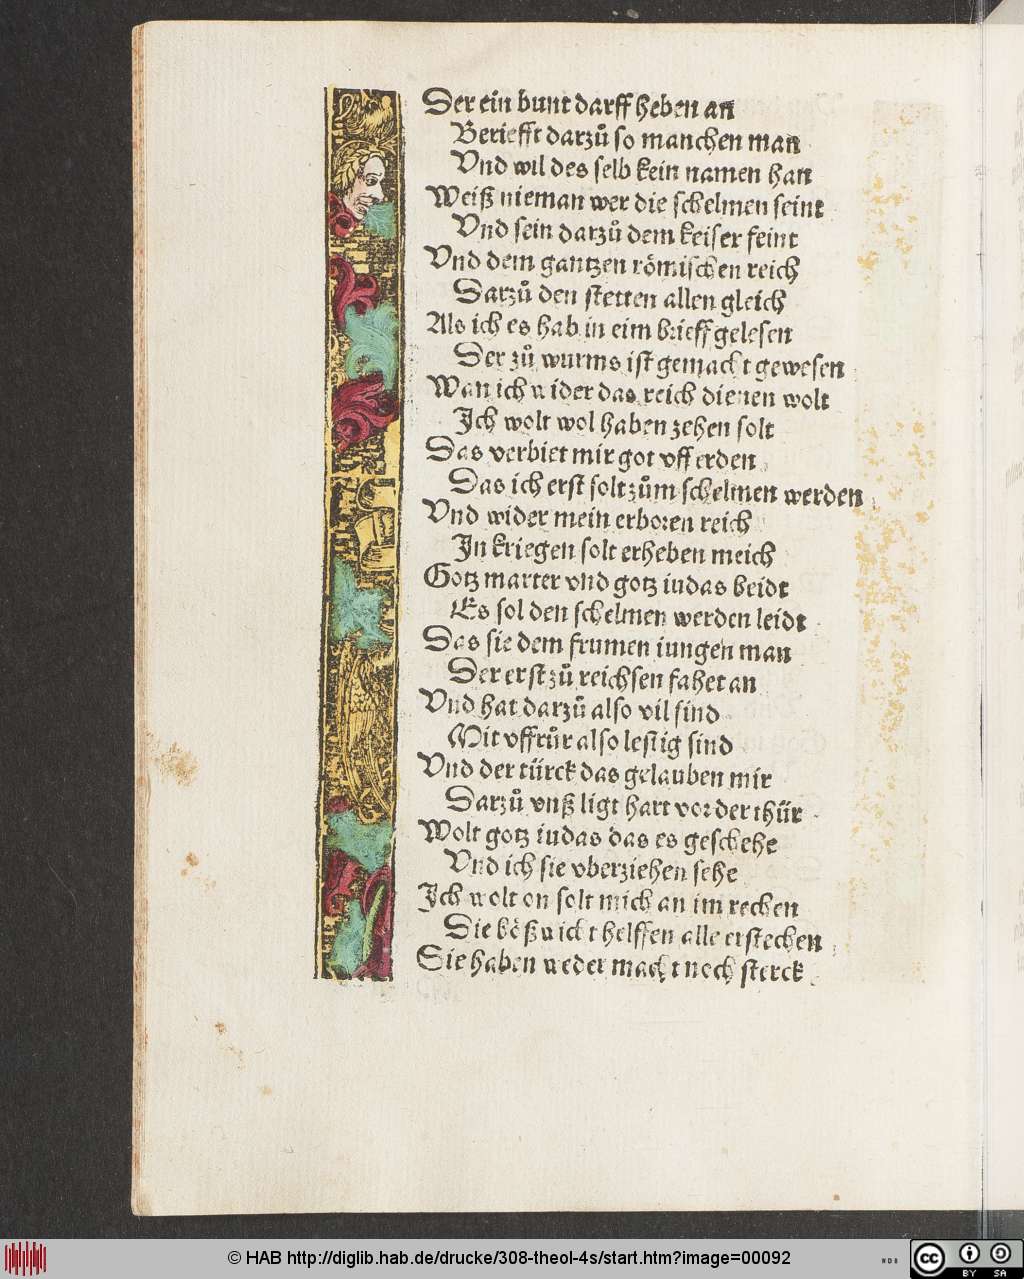 Der ein bunt darff heben an
Beriefft darzů so manchen man
Vnd wil des selb kein namen han
Weiß nieman wer die schelmen seint
Vnd sein darzů dem keiser feint
Vnd dem gantzen römischen reich
Darzů den stetten allen gleich
Als ich es hab in eim brieff gelesen
Der zů wurms ist gemacht gewesen
Wan ich wider das reich dienen wolt
Ich wolt wol haben zehen solt
Das verbiet mir got vff erden
Das ich erst solt zům schelmen werden
Vnd wider mein erboren reich
In kriegen solt erheben meich
Gotz marter vnd gotz iudas beidt
Es sol den schelmen werden leidt
Das sie dem frumen iungen man
Der erst zů reichsen fahet an
Vnd hat darzů also vil find
Mit vffrůr also lestig sind
Vnd der türck das gelauben mir
Darzů vnß ligt hart vor der thür
Wolt gotz iudas das es geschehe
Vnd ich sie vberziehen sehe
Ich wolt on solt mich an im rechen
Die bößwicht helffen alle erstechen
Sie haben weder macht noch sterck
© HAB http://diglib.hab.de/drucke/308-theol-4s/start.htm?image=00092
WDB
cc
BY SA